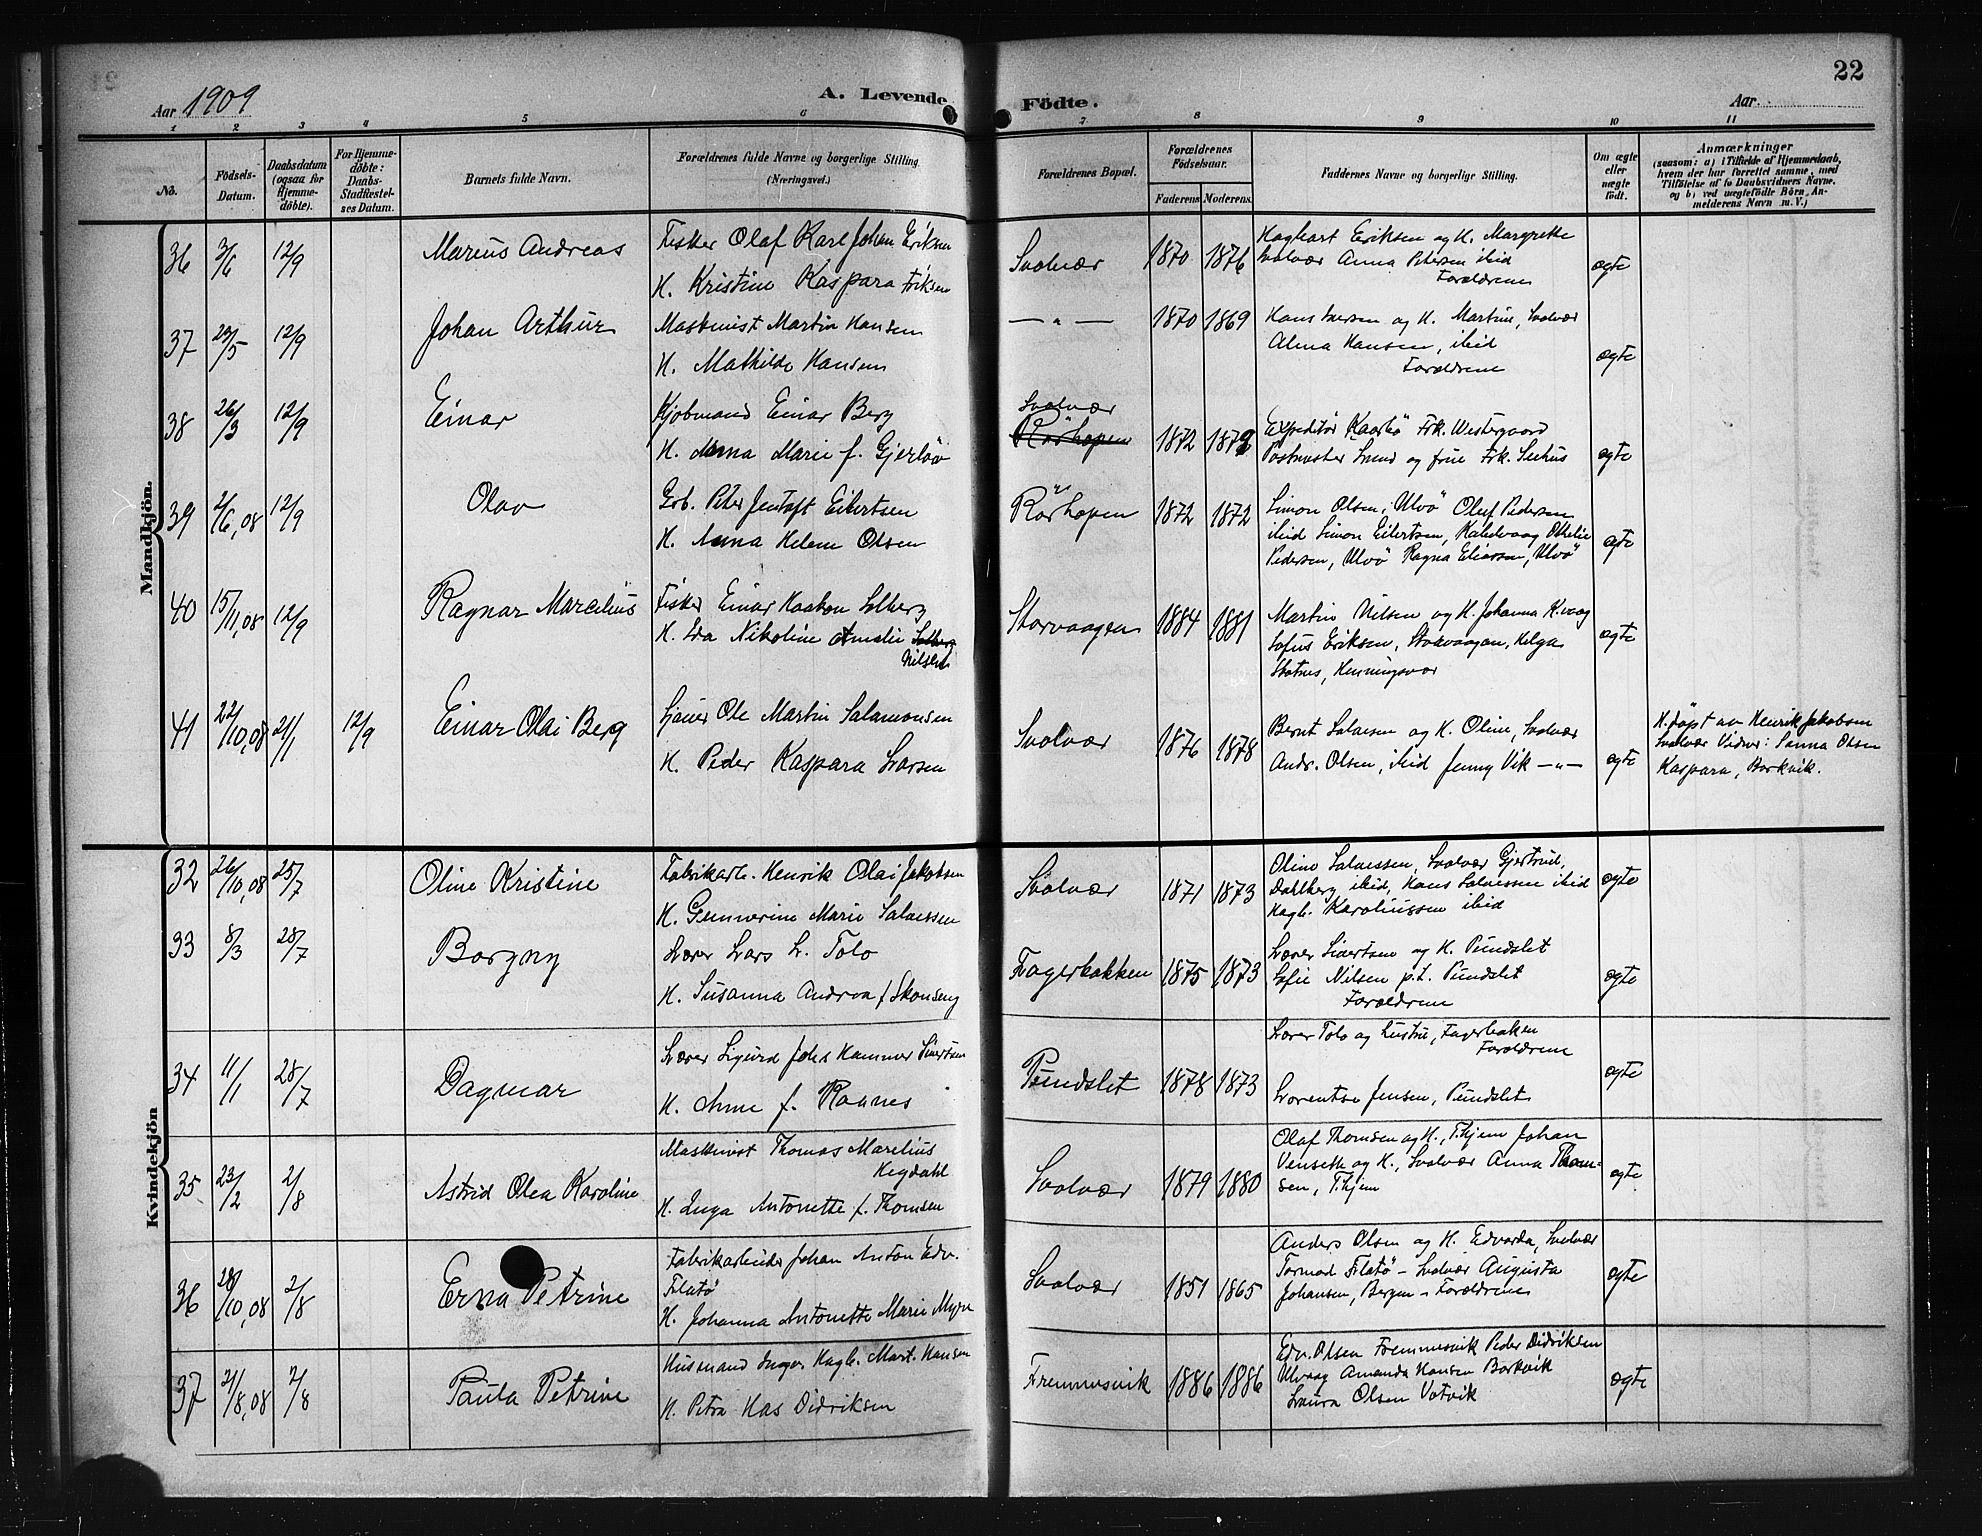 22
Aar 1909
A. Levende
Födte.
Aar
1 2 3 4 5 6 7 8 9 10 11
No.
Födsels-Datum.
Daabsdatum (ogsaa for Hjemme-döbte).
For Hjemme-döbte: Daabs-Stadfæstel-ses Datum.
Barnets fulde Navn.
Forældrenes fulde Navne og borgerlige Stilling.
(Næringsvei.)
Forældrenes Bopæl.
Forældrenes Födselsaar.
Faderens Moderens
Faddernes Navne og borgerlige Stilling.
Om ægte eller uægte födt.
Anmærkninger
(saasom: a) i Tilfælde af Hjemmedaab, hvem der har forrettet samme, med Tilföielse af to Daabsvidners Navne. og b) ved uægtefödte Börn, An-melderens Navn m. V.)
Mandkjön.
36 3/6 12/9 Marius Andreas
Fisker Olaf Karl Johan Eriksen
H. Kristine Kaspara Eriksen
Svolvær 1870 1876
Haghart Eriksen og H. Margrethe
Svolvær Anna Petersen ibid
Forældrene
ægte
37 23/5 12/9 Johan Arthur
Maskinist Martin Hansen
H. Mathilde Hansen
— „ — 1870 1869
Hans Iversen og H. Martine, Svolvær
Alma Hansen, ibid
Forældrene
ægte
38 26/3 12/9 Einar
Kjøbmand Einar Berg
H. Anna Marie f. Gjerløv
Svolvær
Rörhopen
1872
Expeditör Kaarbø Frk. Westergaard
Postmester Smud og frue Frk. Seehus
ægte
39 2/6, 08 12/9 Olav
Grb. Peter Jentoft Eilertsen
H. Anna Helene Olsen
Rörhopen 1872 1872
Simon Olsen, Ulvö Oluf Pedersen
ibid Simon Eilertsen, Kabelvaag Othelie
Pedersen, Ulvö Ragna Eliassen, Ulvö
ægte
40 15/11, 08 12/9 Ragnar Marcelius
Fisker Einar Haakon Solberg
H. Ida Nikoline Amalie Solberg
Nilsen
Storvaagen 1884 1881
Martin Nilsen og H. Johanna K.vaag
Sofus Eriksen, Storvaagan, Helga
Skotnes, Henningsvær
ægte
41 22/10, 08 21/1 12/9 Einar Olai Berg
Ole Martin Salamonsen
H. Peder Kaspara Larsen
Svolvær 1876 1878
Bernt Salvesen og H. Oline, Svolvær
Andr. Olsen, ibid Jenny Vik — „ —
ægte
H.døpt av Henrik Jakobsen
Svolvær Vidner: Sanna Olsen
Kaspara, Borkvik.
Kvindekjön
32 26/10, 08 25/7 Oline Kristine
Fabrikarb. Henrik Olai Jakobsen
H. Gunnerine Marie Salvessen
Svolvær 1871 1873
Oline Salvessen, Svolvær Gjertrud,
Dahlberg ibid, Hans Salvessen ibid
Hagb. Karoliussen ibid
ægte
33 8/3 28/7 Borgny
Lærer Lars L. Tolo
H. Susanna Andrea f Skonseng
Fagerbakken 1875 1873
Lærer Sivertsen og H. Pundslet
Sofie Nilsen p.t. Pundslet
Forældrene
ægte
34 11/1 28/7 Dagmar
Lærer Sigurd Johs Hammer Sivertsen
H. Anne f. Raanes
Pundslet 1878 1873
Lærer Tolo og hustru, Fagerbakken
Forældrene
Lorentse Jensen, Pundslet
ægte
35 23/2 2/8 Astrid Olea Karoline
Maskinist Thomas Marelius
Hegdahl
H. Inga Antonette f. Thomsen
Svolvær 1879 1880
Olaf Thomsen og H., T.hjem Johan
og H., Svolvær Anna Thom-
sen, T.hjem
ægte
36 28/10, 08 2/8 Erna Petrine
Fabrikarbeider Johan Anton Edv.
Flatø
H. Johanna Antonette Marie Myre
Svolvær 1851 1865
Anders Olsen og H. Edvarda, Svolvær
Tormod Flatø – Svolvær Augusta
Johansen, Bergen – Forældrene
ægte
37 21/8, 08 2/8 Paula Petrine
Husmand Ingv. Hagb. Mart. Hansen
H. Petra Has Didriksen
Fremmesvik 1886 1886
Edv. Olsen Fremmesvik Peder Didriksen
Ulvaag Amanda Hansen Borkvik
Laura Olsen Votvik
ægte